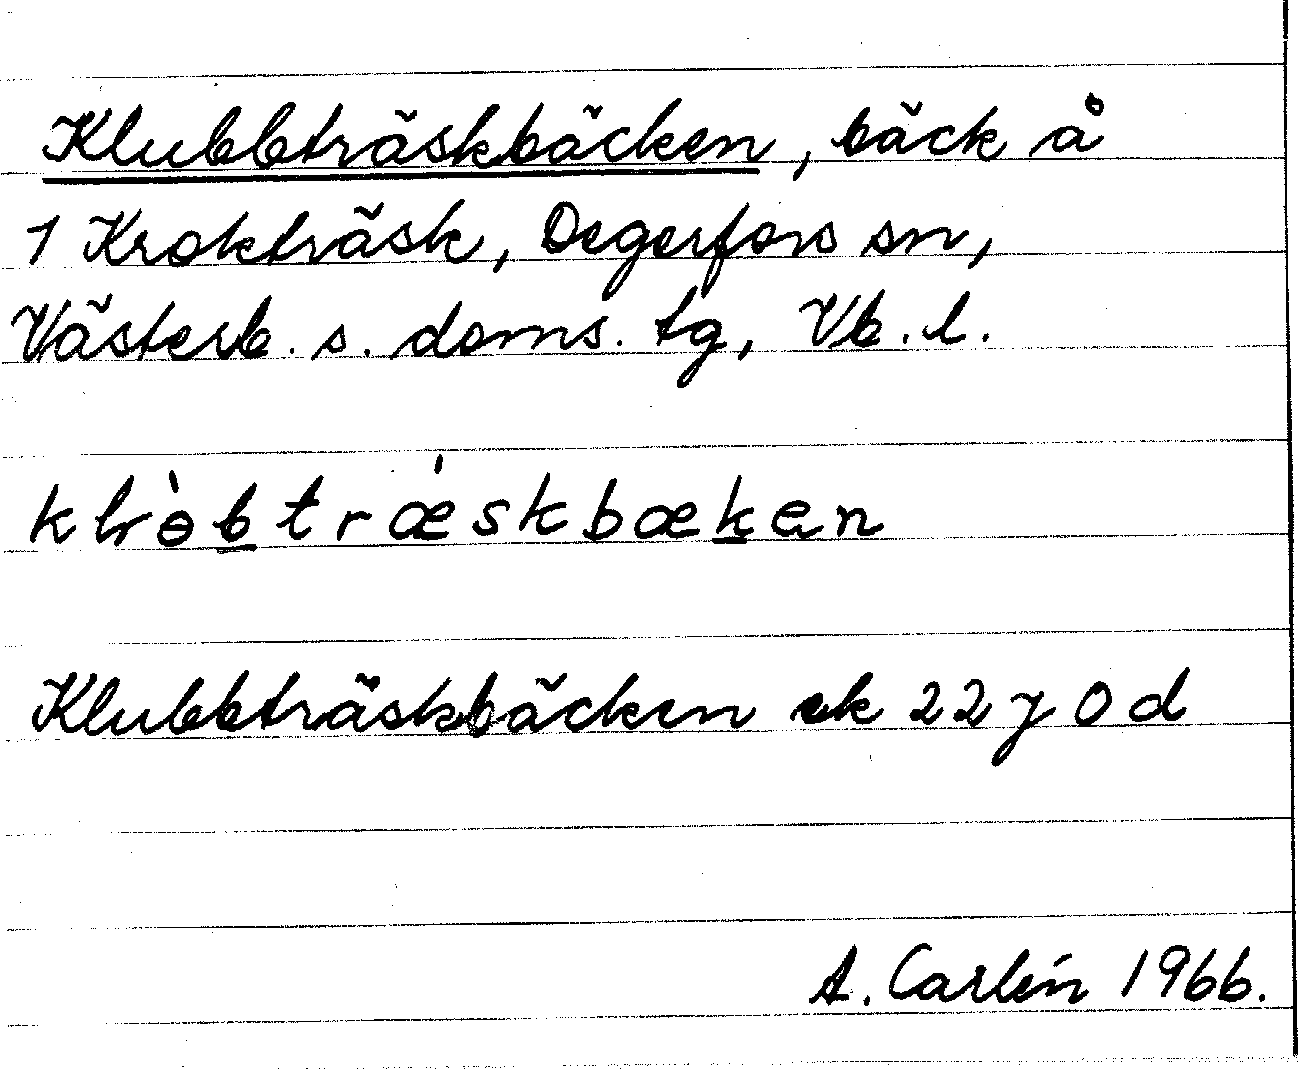 Klubbträskbäcken, bäck å
1 Krokträsk, Degerfors sn,
Västerb. s. doms. tg, Vb. l.
klɵ̀btrǽskbækan
Klubbträskbäcken ek 22 j 0 d
A. Carlén 1966.